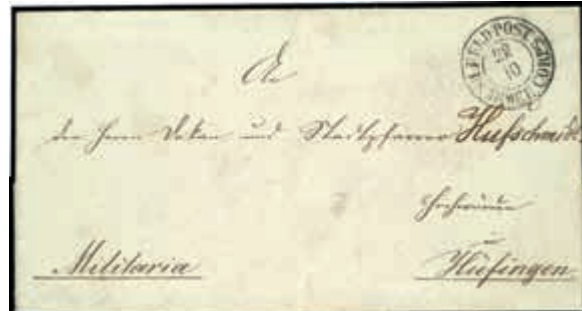 FELDPOST
22
10
An
den Herrn Dekan und Stadtpfarrer Hufschmidt,
Hochwürden
Militaria
Hüfingen